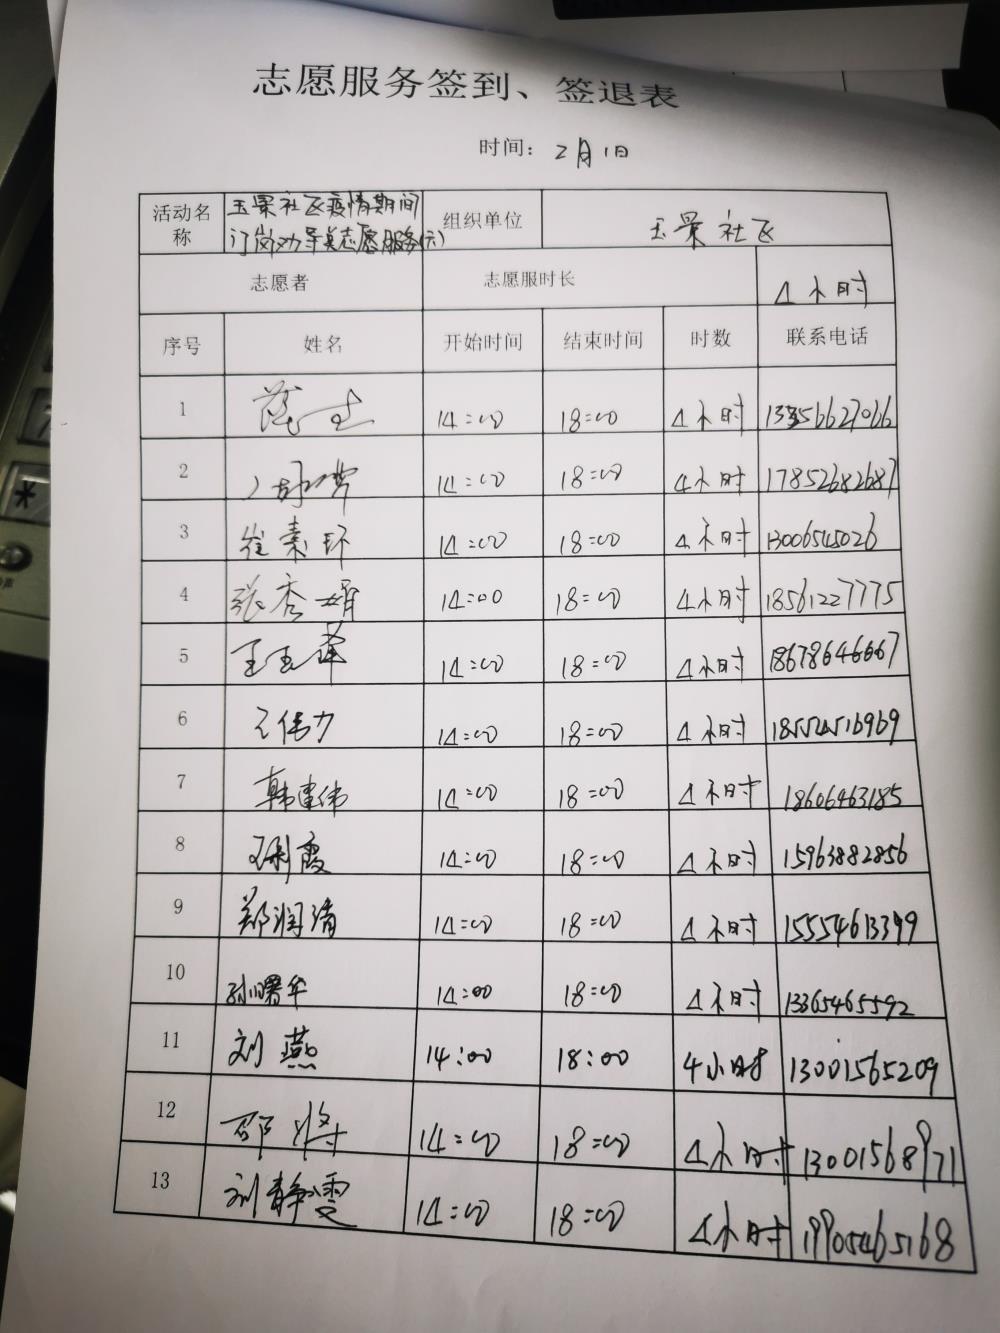 志愿服务签到、签退表
时间：2月1日
活动名称 玉景社区疫情期间 组织单位 玉景社区
岗劝导志愿服务
志愿者 志愿服时长 4小时
序号 姓名 开始时间 结束时间 时数 联系电话
1 14:00 18:00 4小时
2 14:00 18:00 4小时 17852682687
3 崔素环 14:00 18:00 4小时 13006545026
4 张秀娟 14:00 18:00 4小时 18561227775
5 14:00 18:00 4小时 18678646667
6 王伟力 14:00 18:00 4小时
7 韩建伟 14:00 18:00 4小时 18606463185
8 14:00 18:00 4小时 15963882856
9 郑润清 14:00 18:00 4小时 15554613399
10 孙曙华 14:00 18:00 4小时 13365465592
11 刘燕 14:00 18:00 4小时 13001565209
12 邵将 14:00 18:00 4小时 13001568971
13 刘静雯 14:00 18:00 4小时 19905465168